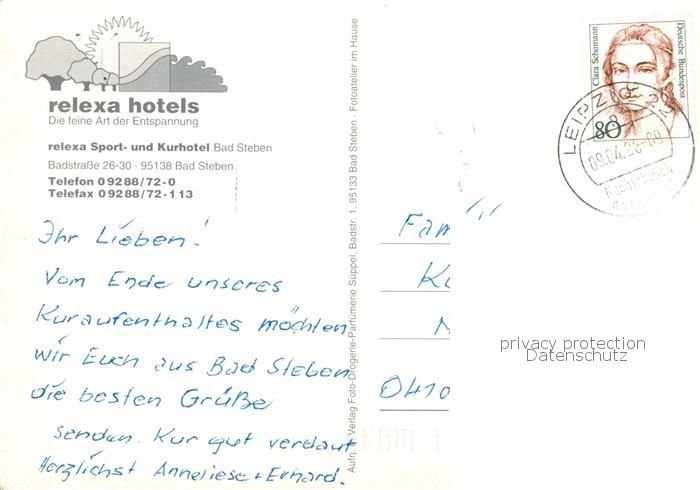 relexa hotels
Die feine Art der Entspannung
relexa Sport- und Kurhotel Bad Steben
Badstraße 26-30 · 95138 Bad Steben
Telefon 0 92 88 / 72 - 0
Telefax 0 92 88 / 72 - 1 13
Ihr Lieben!
Vom Ende unseres
Kuraufenthaltes möchten
wir Euch aus Bad Steben
die besten Grüße
senden. Kur gut verdaut
Herzlichst Anneliese + Erhard.
Aufn. u. Verlag Foto-Drogerie-Parfümerie Süppel, Badstr. 1, 95133 Bad Steben - Fotoatelier im Hause
Clara Schumann
Deutsche Bundespost
80
LEIPZIG 32
Nachträglich
entwertet
Fam
0410
privacy protection
Datenschutz